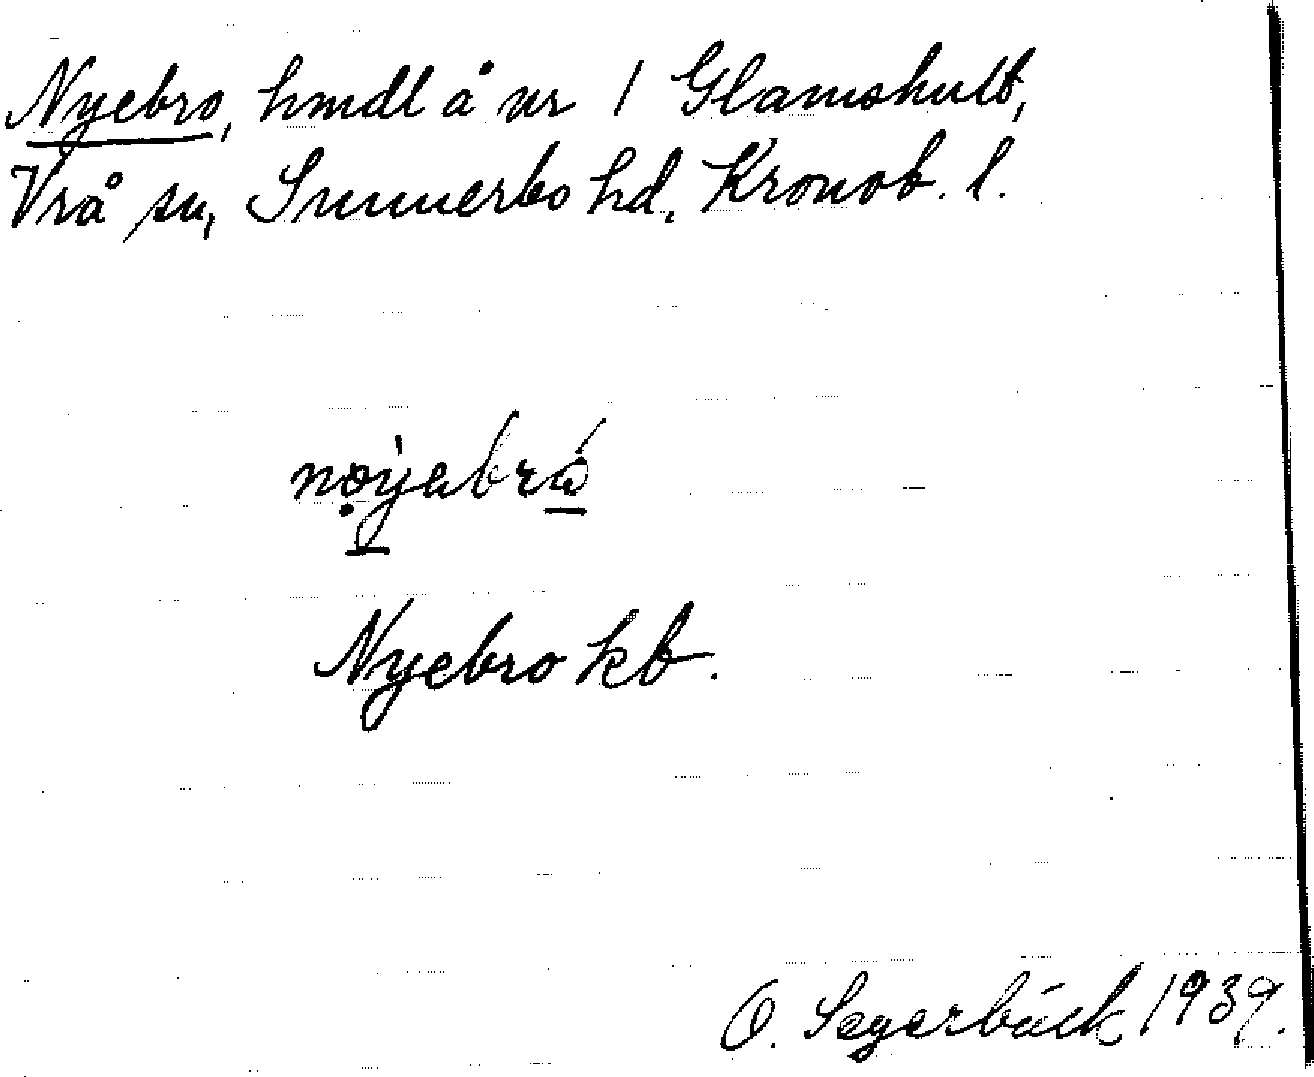 Nyebro, hmdl å nr 1 Glamshult,
Vrå sn, Sunnerbo hd, Kronob. l.
Nyebro kb.
O. Segerbäck 1939.